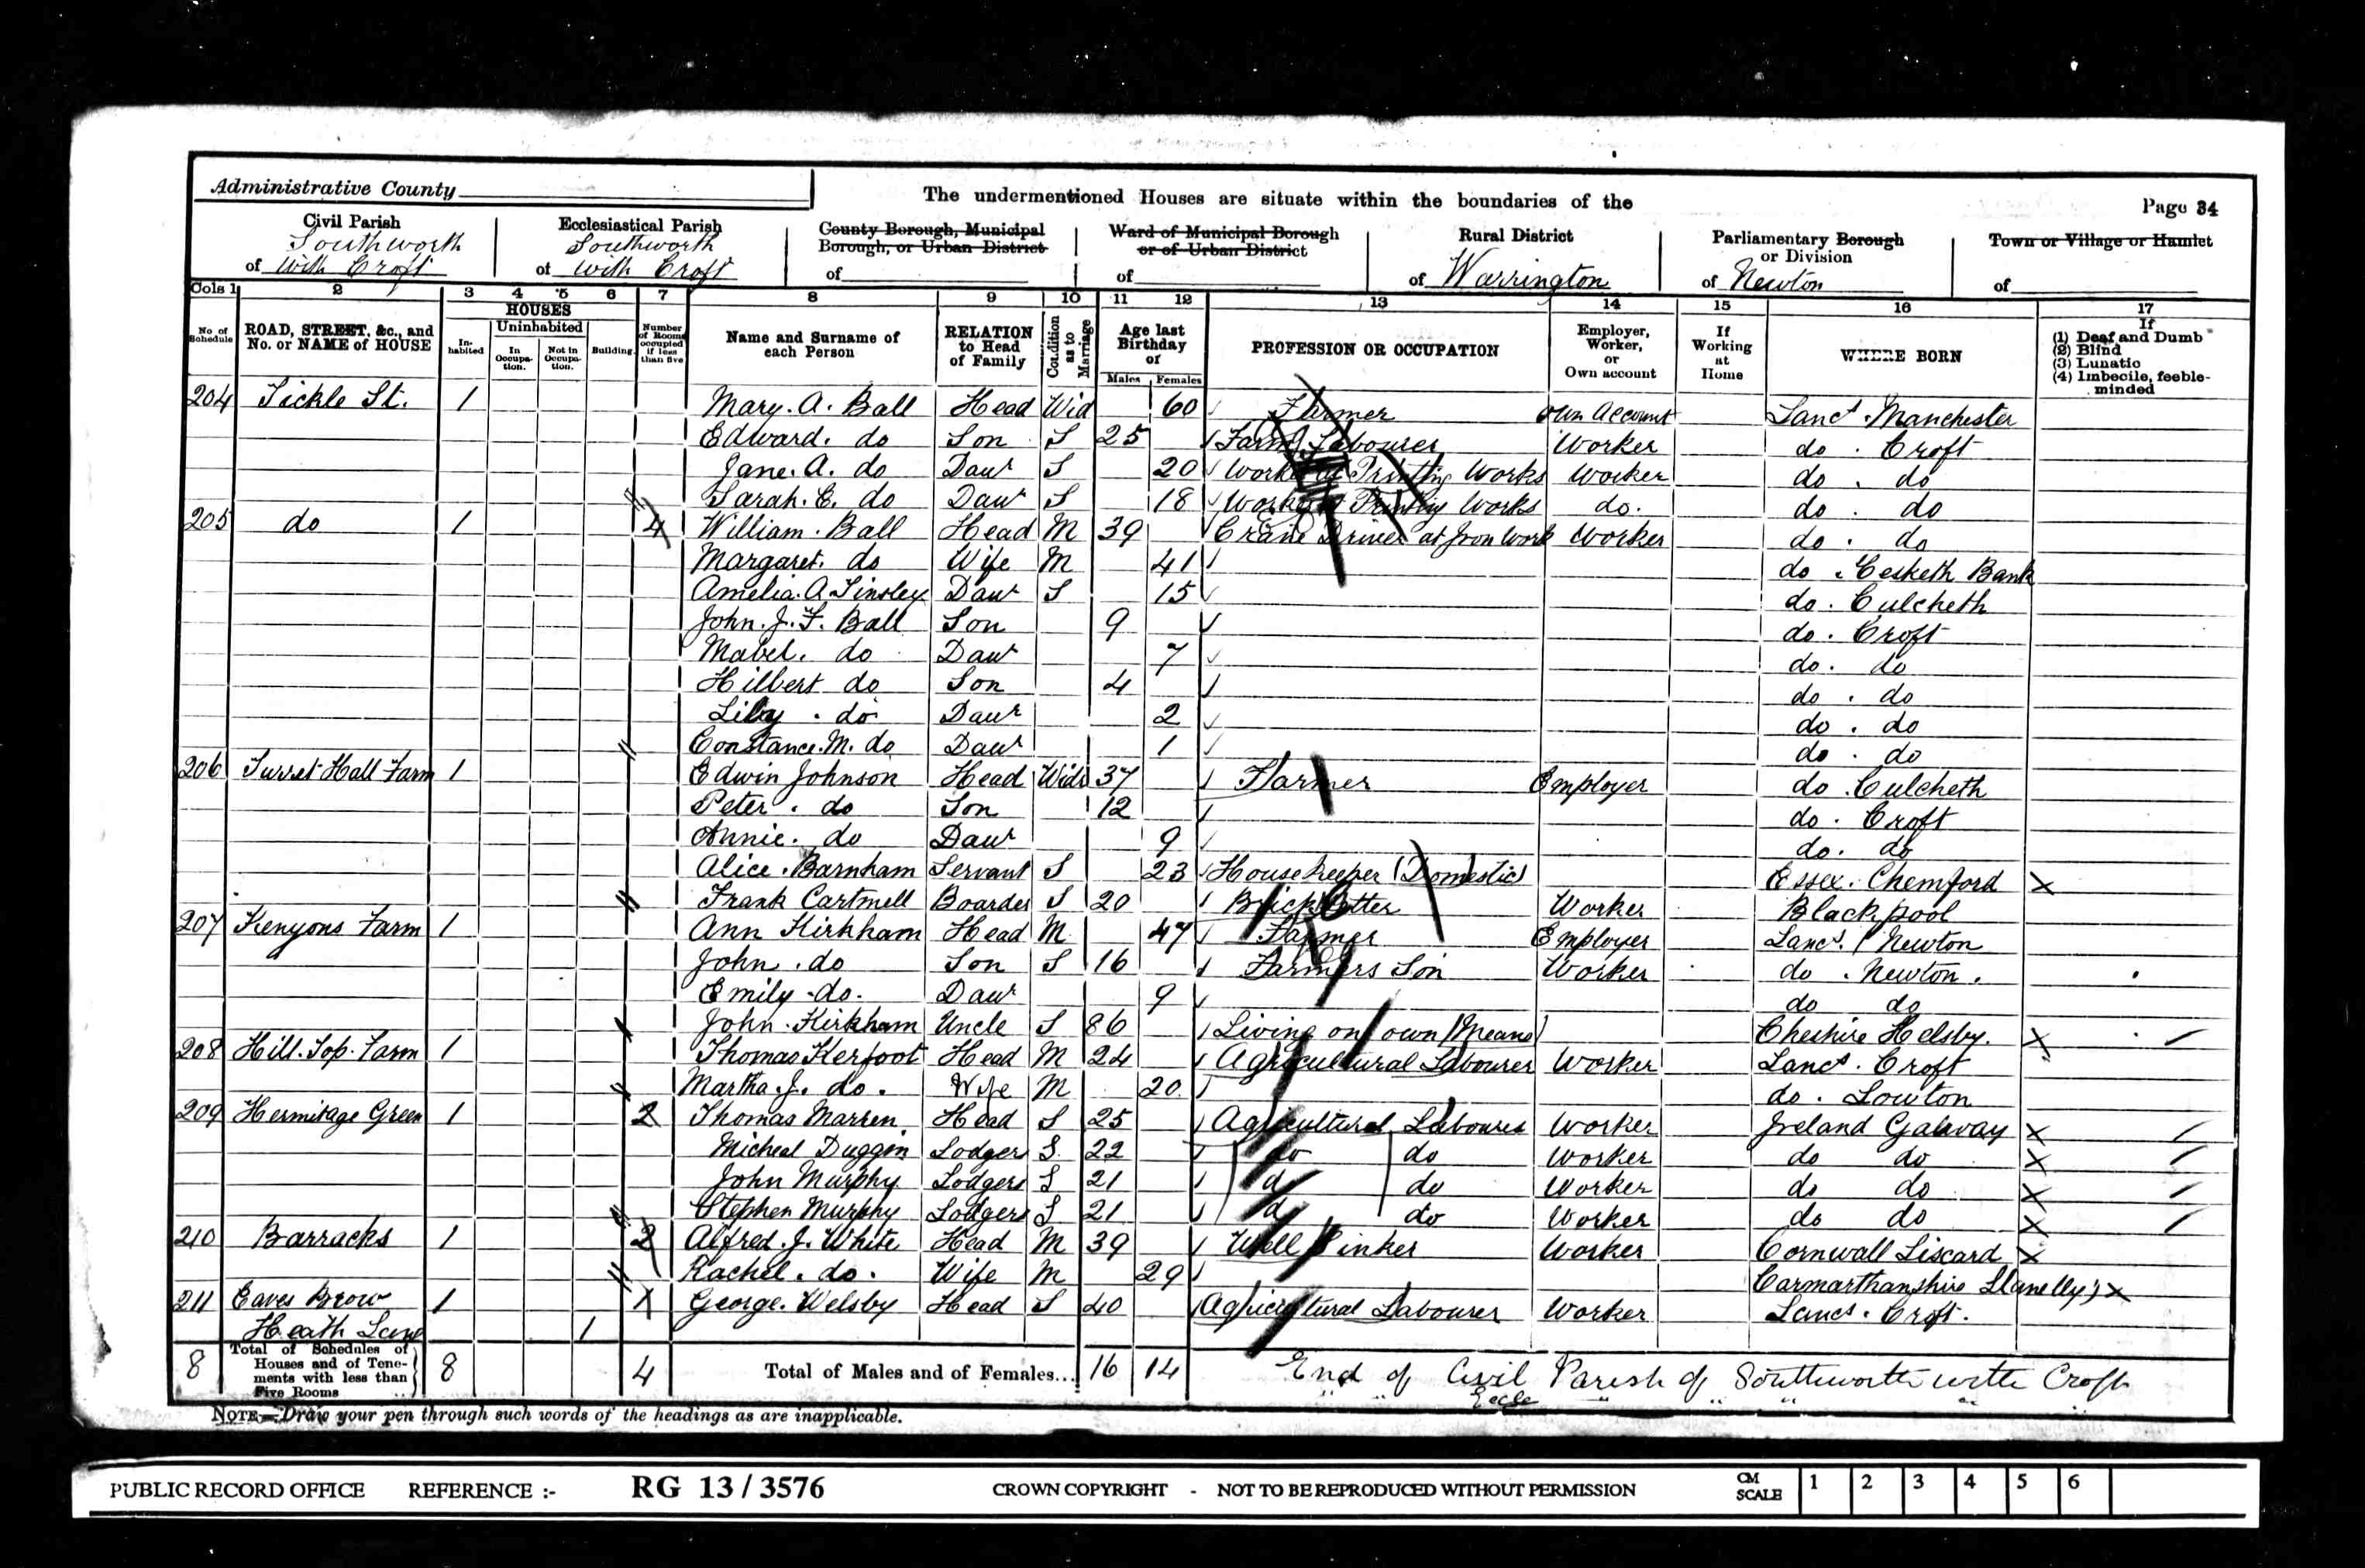 Administrative County
The undermentioned Houses are situate within the boundaries of the
Page 34
Civil Parish
of Southworth with Croft
Ecclesiastical Parish
of Southworth with Croft
County Borough, Municipal Borough, or Urban District
of
Ward of Municipal Borough or of Urban District
of
Rural District
of Warrington
Parliamentary Borough or Division
of Newton
Town or Village or Hamlet
of
Cols 1 2 3 4 5 6 7 8 9 10 11 12 13 14 15 16 17
No of Schedule
ROAD, STREET, &c., and No. or NAME of HOUSE
HOUSES
Inhabited
Uninhabited
In Occupation.
Not in Occupation.
Building
Number of Rooms occupied if less than five
Name and Surname of each Person
RELATION to Head of Family
Condition as to Marriage
Age last Birthday of
Males Females
PROFESSION OR OCCUPATION
Employer, Worker, or Own account
If Working at Home
WHERE BORN
If
(1) Deaf and Dumb
(2) Blind
(3) Lunatic
(4) Imbecile, feeble-minded
204 Sickle St. 1 Mary. A. Ball Head Wid 60 Farmer Own Account Lancs. Manchester
Edward. do Son S 25 Farm Labourer Worker do . Croft
Jane. A. do Daur S 20 Worker at Printing Works Worker do . do
Sarah. E. do Daur S 18 Worker at Printing Works do. do . do
205 do 1 4 William. Ball Head M 39 Crane Driver at Iron Work Worker do . do
Margaret. do Wife M 41 do . Hesketh Bank
Amelia. A Tinsley Daur S 15 do . Culcheth
John. J. F. Ball Son 9 do . Croft
Mabel. do Daur 7 do . do
Hilbert do Son 4 do . do
Lily . do Daur 2 do . do
Constance. M. do Daur 1 do . do
206 Turret Hall Farm 1 Edwin Johnson Head Widr 37 Farmer Employer do . Culcheth
Peter . do Son 12 do . Croft
Annie. do Daur 9 do. do
Alice. Barnham Servant S 23 Housekeeper (Domestic) Essex. Chemford X
Frank Cartmell Boarder S 20 Brick Worker Blackpool
207 Kenyons Farm 1 Ann Kirkham Head M 47 Farmer Employer Lancs. Newton
John . do Son S 16 Farmers Son Worker do . Newton .
Emily . do. Daur 9 do do
John . Kirkham Uncle S 86 Living on own Means Cheshire Helsby. X
208 Hill. Top. Farm 1 Thomas Kerfoot Head M 24 Agricultural Labourer Worker Lancs. Croft
Martha. J. do . Wife M 20 do . Lowton
209 Hermitage Green 1 2 Thomas Marren Head S 25 Agricultural Labourer Worker Ireland Galway X
Micheal Duggin Lodger S. 22 do do Worker do do X
John Murphy Lodgers S 21 d do Worker do do X
Stephen Murphy Lodgers S 21 d do Worker do do X
210 Barracks 1 2 Alfred. J. White Head M 39 Well Sinker Worker Cornwall Liscard X
Rachel . do . Wife M 29 Carmarthanshire Llanelly X
211 Eaves Brow 1 1 George. Welsby Head S 40 Agricultural Labourer Worker Lancs. Croft.
Heath Lane 1
8 Total of Schedules of Houses and of Tenements with less than Five Rooms 8 4 Total of Males and of Females... 16 14 End of Civil Parish of Southworth with Croft
" " Eccle " " " " "
NOTE—Draw your pen through such words of the headings as are inapplicable.
PUBLIC RECORD OFFICE REFERENCE :- RG 13 / 3576 CROWN COPYRIGHT - NOT TO BE REPRODUCED WITHOUT PERMISSION CM SCALE 1 2 3 4 5 6